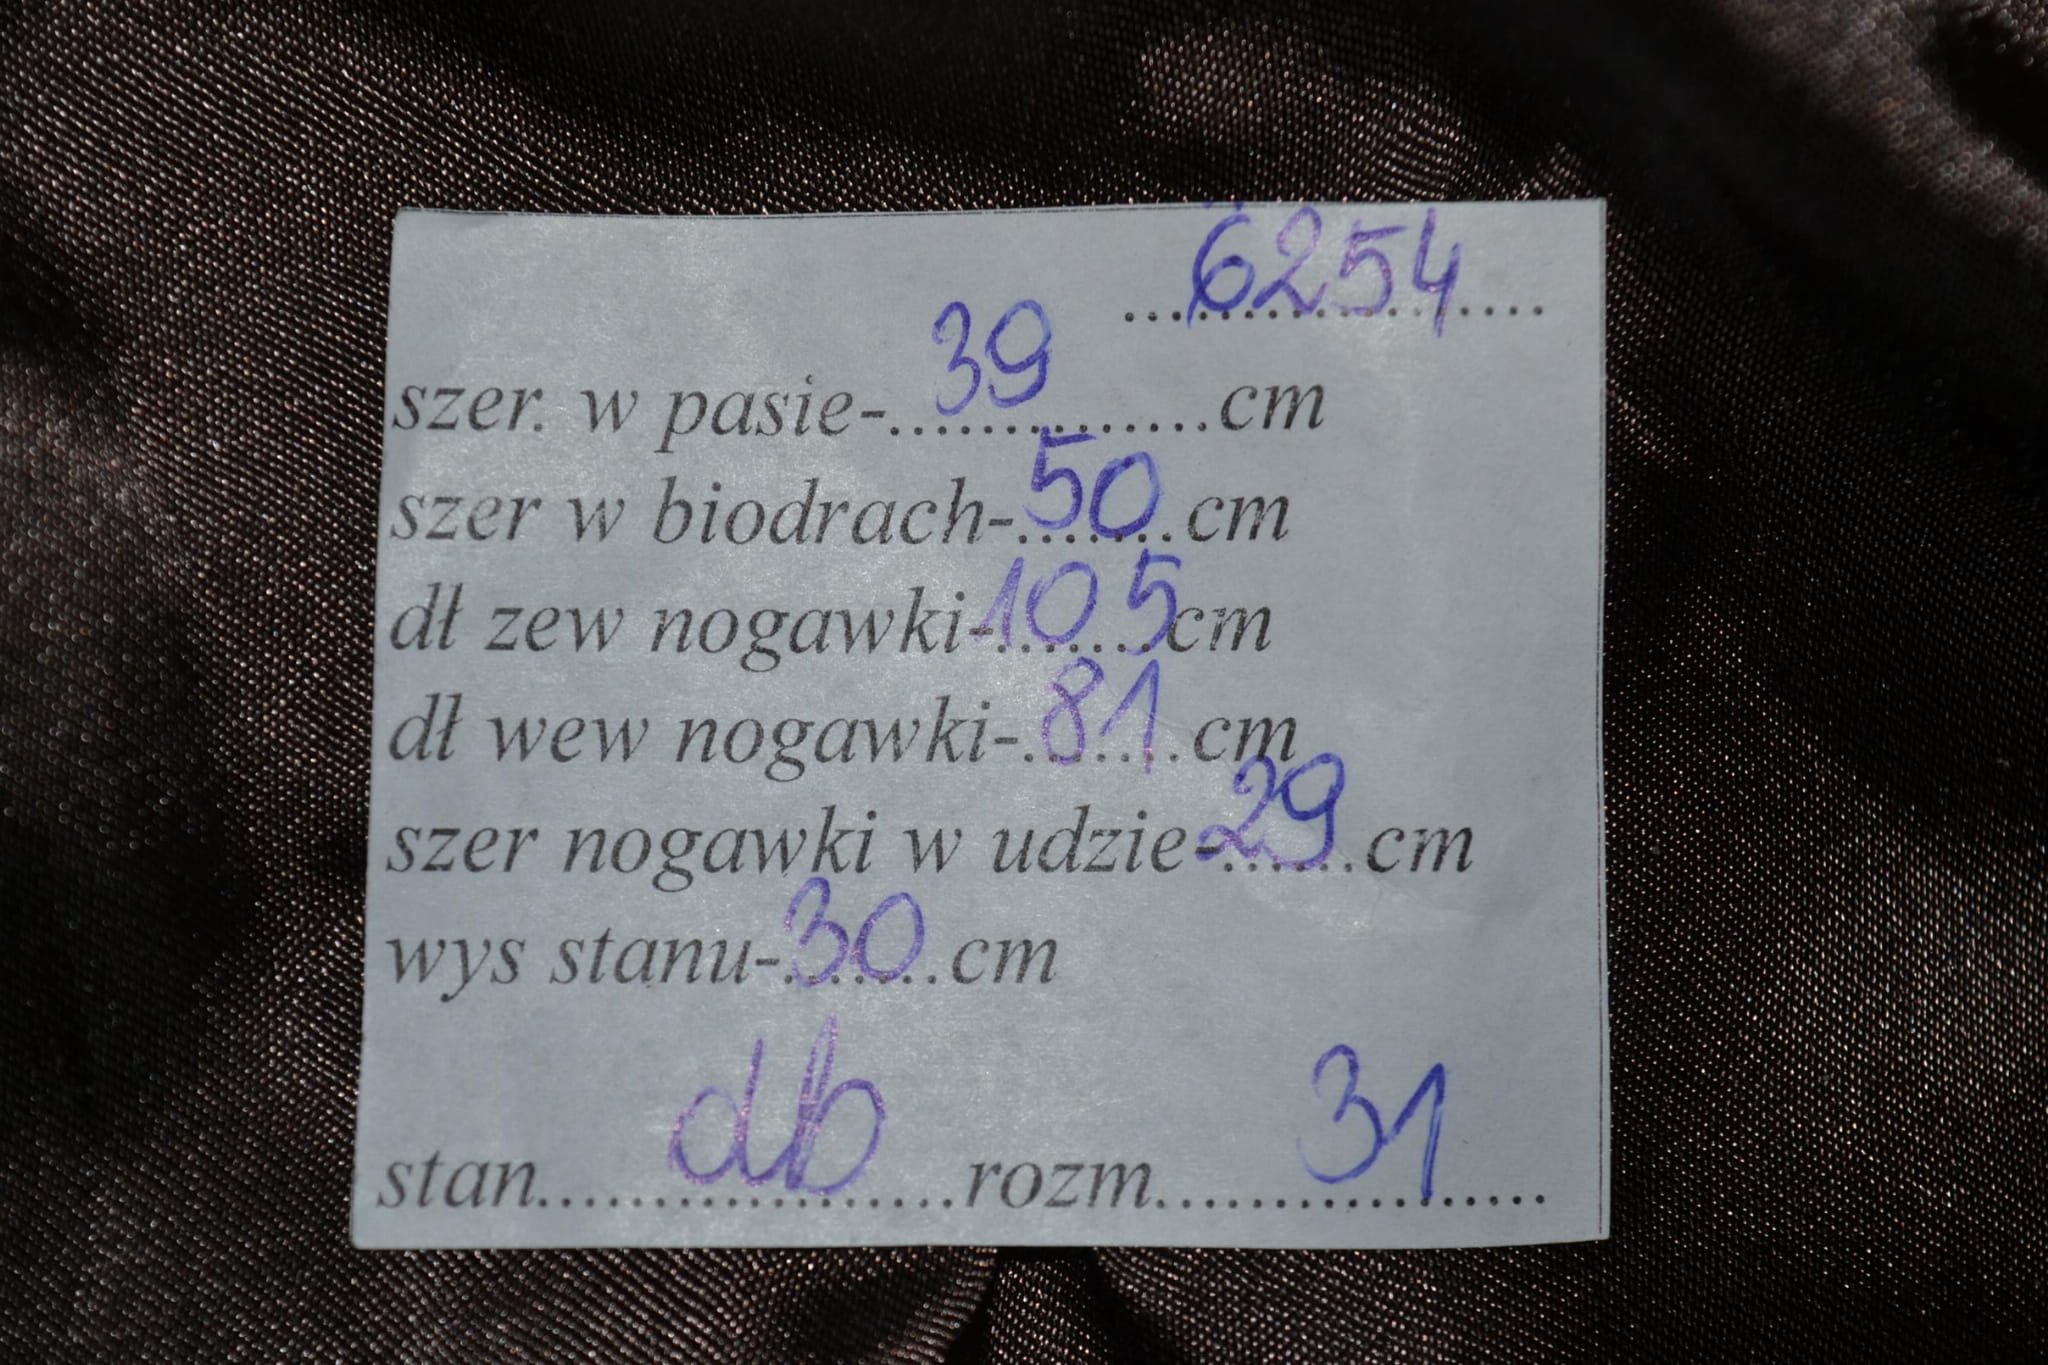 ...6254...
szer. w pasie-...39...cm
szer w biodrach-...50...cm
dł zew nogawki-...105...cm
dł wew nogawki-...81...cm
szer nogawki w udzie-...29...cm
wys stanu-...30...cm
stan...db...rozm...31...